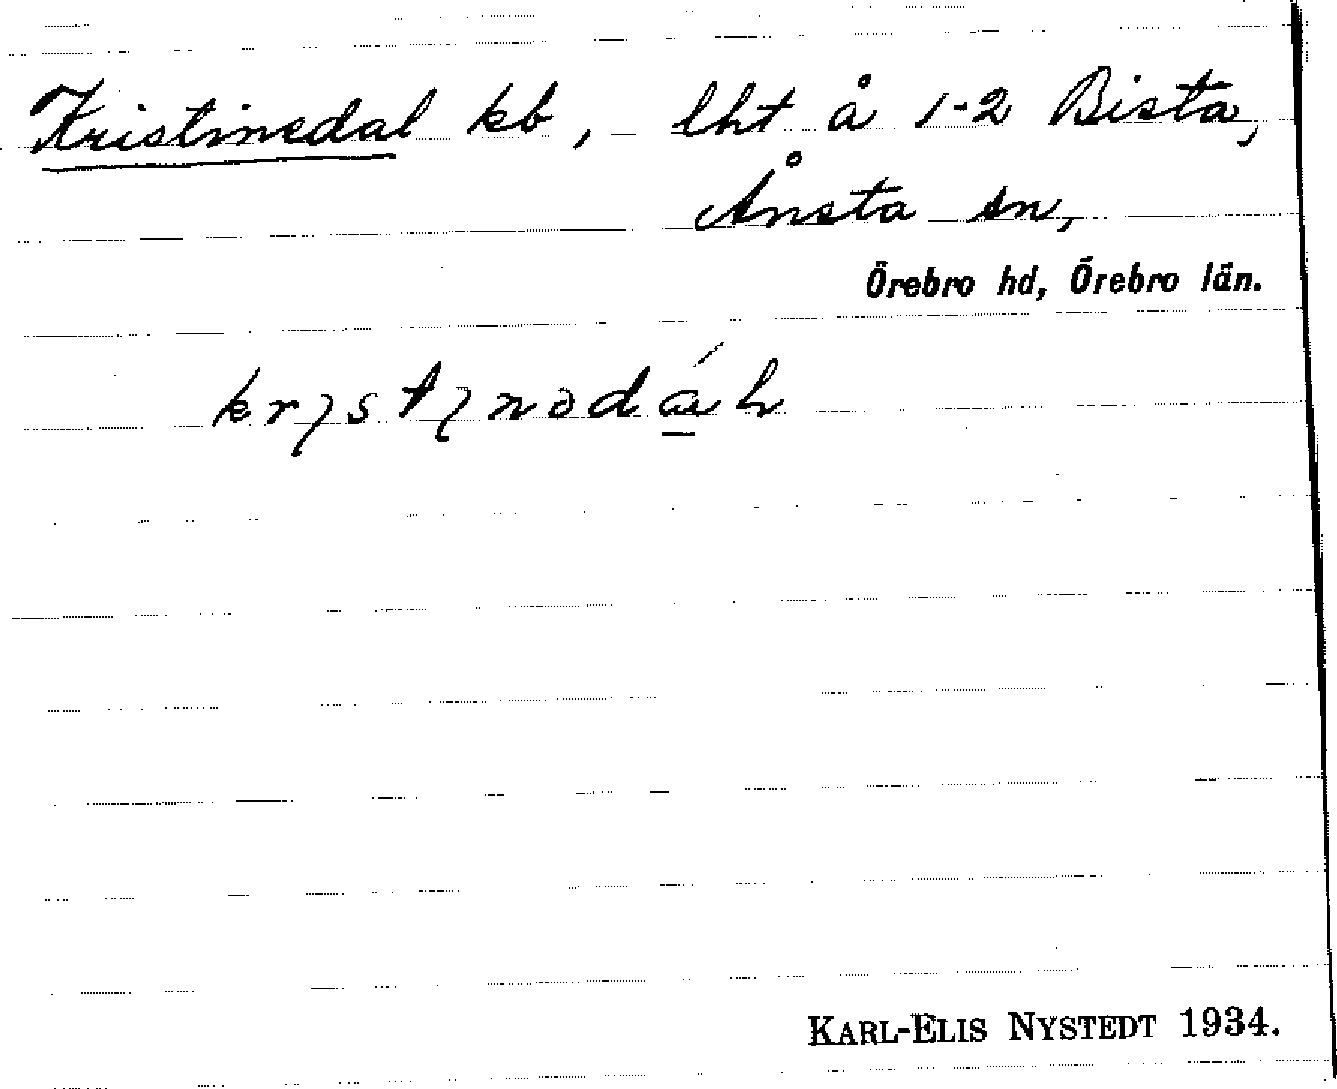 Kristinedal kb, lht å 1-2 Bista,
Ånsta sn,
Örebro hd, Örebro län.
KARL-ELIS NYSTEDT 1934.